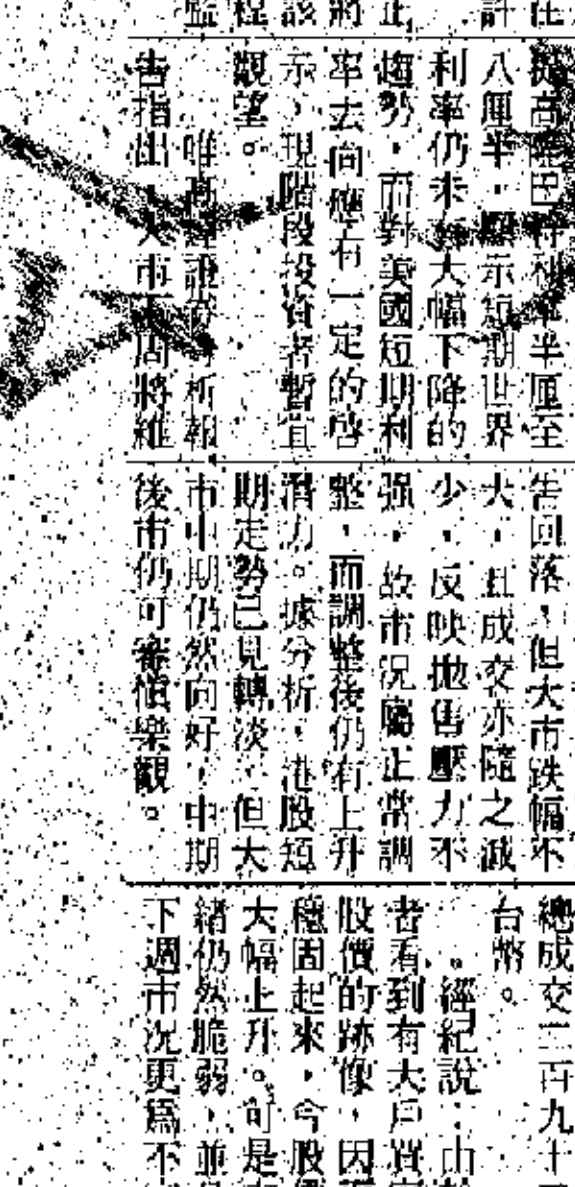 提高隆巴特利率半厘至
八厘半，顯示短期世界
利率仍未有大幅下降的
趨勢，而對美國短期利
率去向應有一定的啓
示，現階段投資者暫宜
觀望。
唯高達證券分析報
告指出，大市下周將維
告回落，但大市跌幅不
大，且成交亦隨之減
少，反映拋售壓力不
强，故市況屬正常調
整，而調整後仍有上升
潛力。據分析，港股短
期走勢已見轉淡，但大
市中期仍然向好，中期
後市仍可審愼樂觀。
總成交二百九十
台幣。
經紀說：由
者看到有大戶買
股價的跡像，因
穩固起來，令股
大幅上升。可是
緒仍然脆弱，並
下週市況更爲不